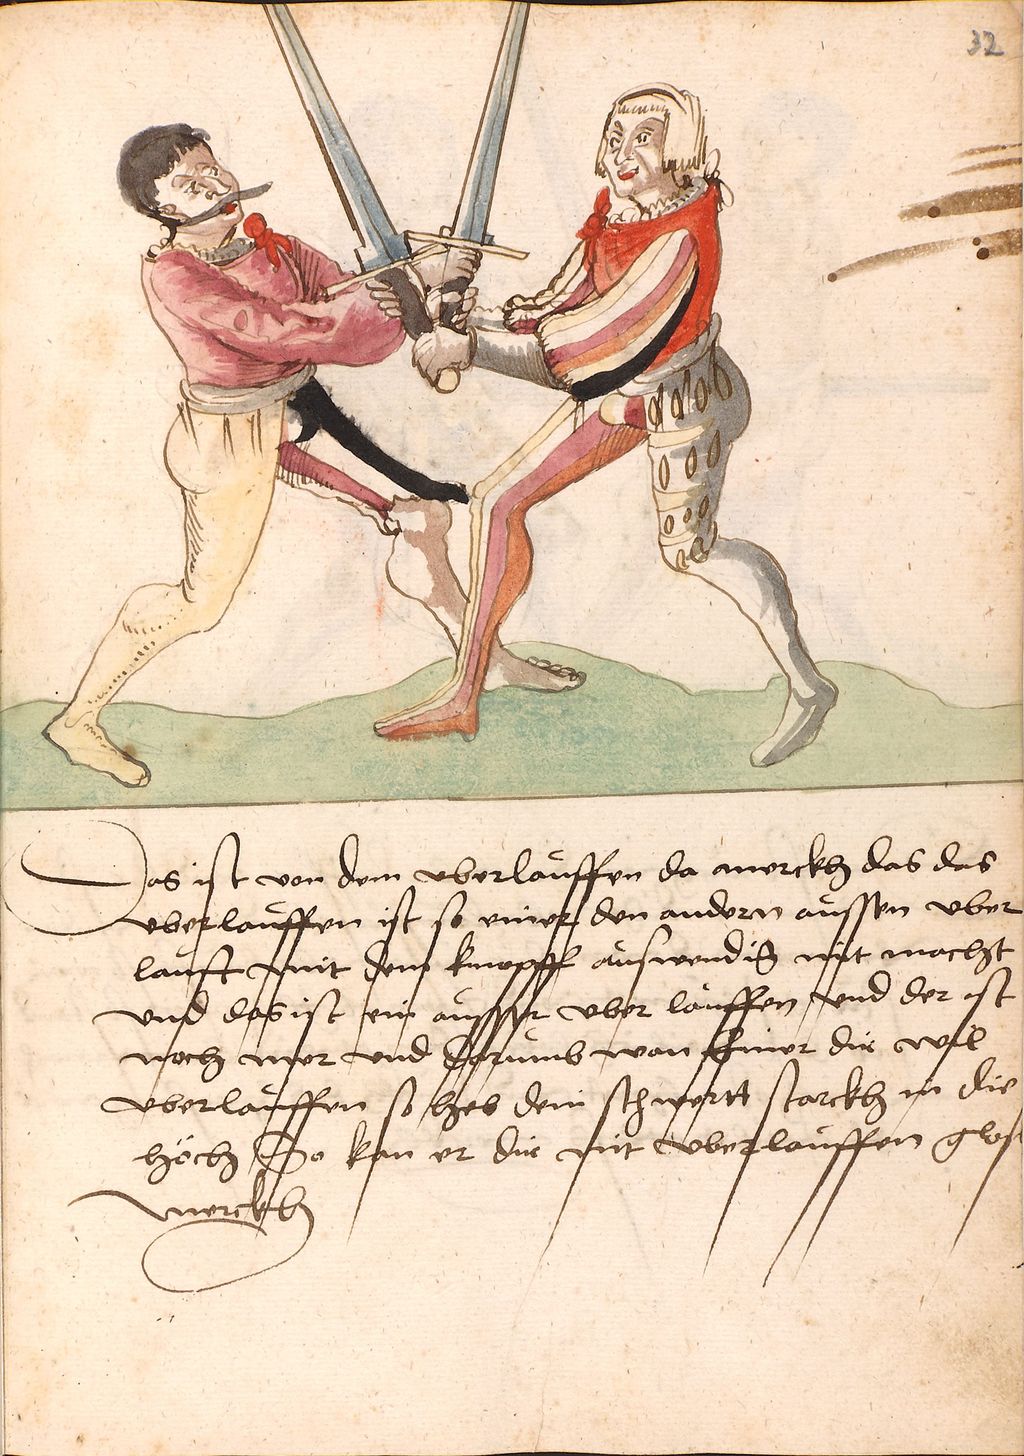 32
Das ist von dem vberlauffen da merckh das das
vberlauffen ist so einer den andern aussen vber
laufft mit dem knopff auswendig mit macht
vnd das ist ein ausser vber lauffen vnd der ist
noch mer vnd Darumb wan einer dir wil
vberlauffen so heb dein schwertt starckh in die
höch So kan er dir nit vberlauffen glos
merckh